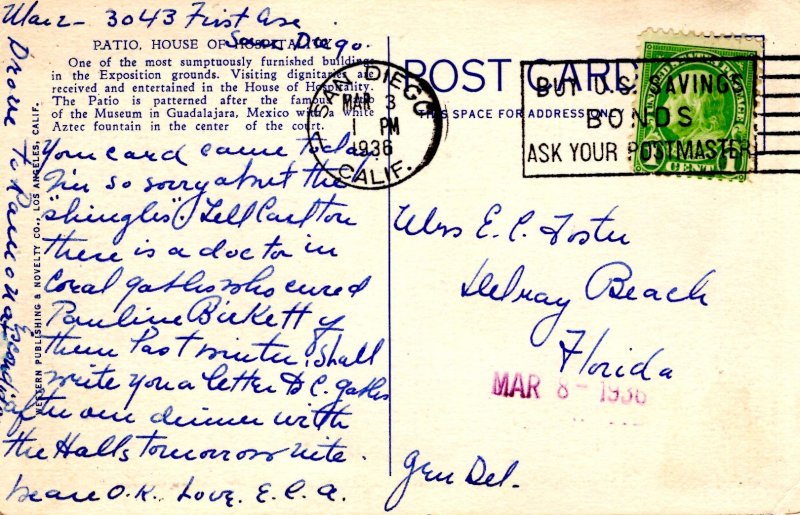 Mar 2 - 3043 First Ave
San Diego.
PATIO, HOUSE OF HOSPITALITY
One of the most sumptuously furnished buildings
in the Exposition grounds. Visiting dignitaries are
received and entertained in the House of Hospitality.
The Patio is patterned after the famous Patio
of the Museum in Guadalajara, Mexico with a white
Aztec fountain in the center of the court.
Your card came today.
I'm so sorry about the
"shingles". Tell Carlton
there is a doctor in
Coral gables who cured
Pauline Birkett of
them last winter. Shall
write you a letter to C. gables
after our dinner with
the Halls tomorrow nite.
We are O.K. Love. E.C.A.
Drove to Ramona
Escondido
WESTERN PUBLISHING & NOVELTY CO., LOS ANGELES, CALIF.
POST CARD
THIS SPACE FOR ADDRESS ONLY
SAN DIEGO
MAR 3
1 PM
1936
CALIF.
BUY U.S. SAVINGS
BONDS
ASK YOUR POSTMASTER
CENT
Mrs E. C. Foster
Delray Beach
Florida
MAR 8 - 1936
Gen Del.